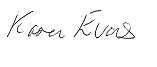 Karen Evans